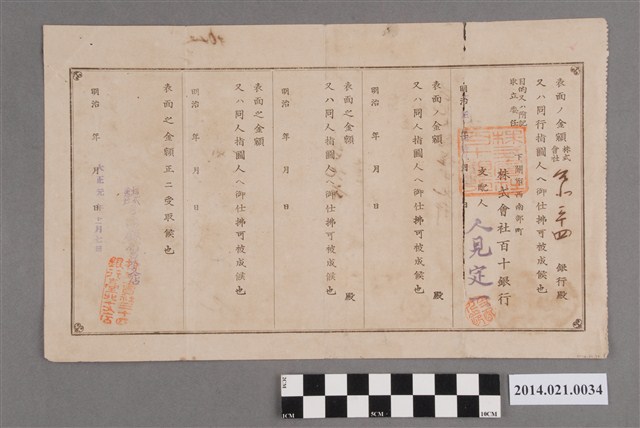 表面ノ金額株式會社第三十四銀行殿
又ハ同行指圖人ヘ御仕拂可被成候也
目的又ハ附記
取立委任
下關市西南部町
株式會社百十銀行
支配人 人見定一
明治 年 月 日
表面ノ金額 殿
又ハ同人指圖人ヘ御仕拂可被成候也
明治 年 月 日
表面之金額 殿
又ハ同人指圖人ヘ御仕拂可被成候也
明治 年 月 日
表面之金額 殿
又ハ同人指圖人ヘ御仕拂可被成候也
明治 年 月 日
表面之金額正ニ受取候也
明治 年 月 日
大正元年
1CM
5CM
10CM
2CM
2014.021.0034